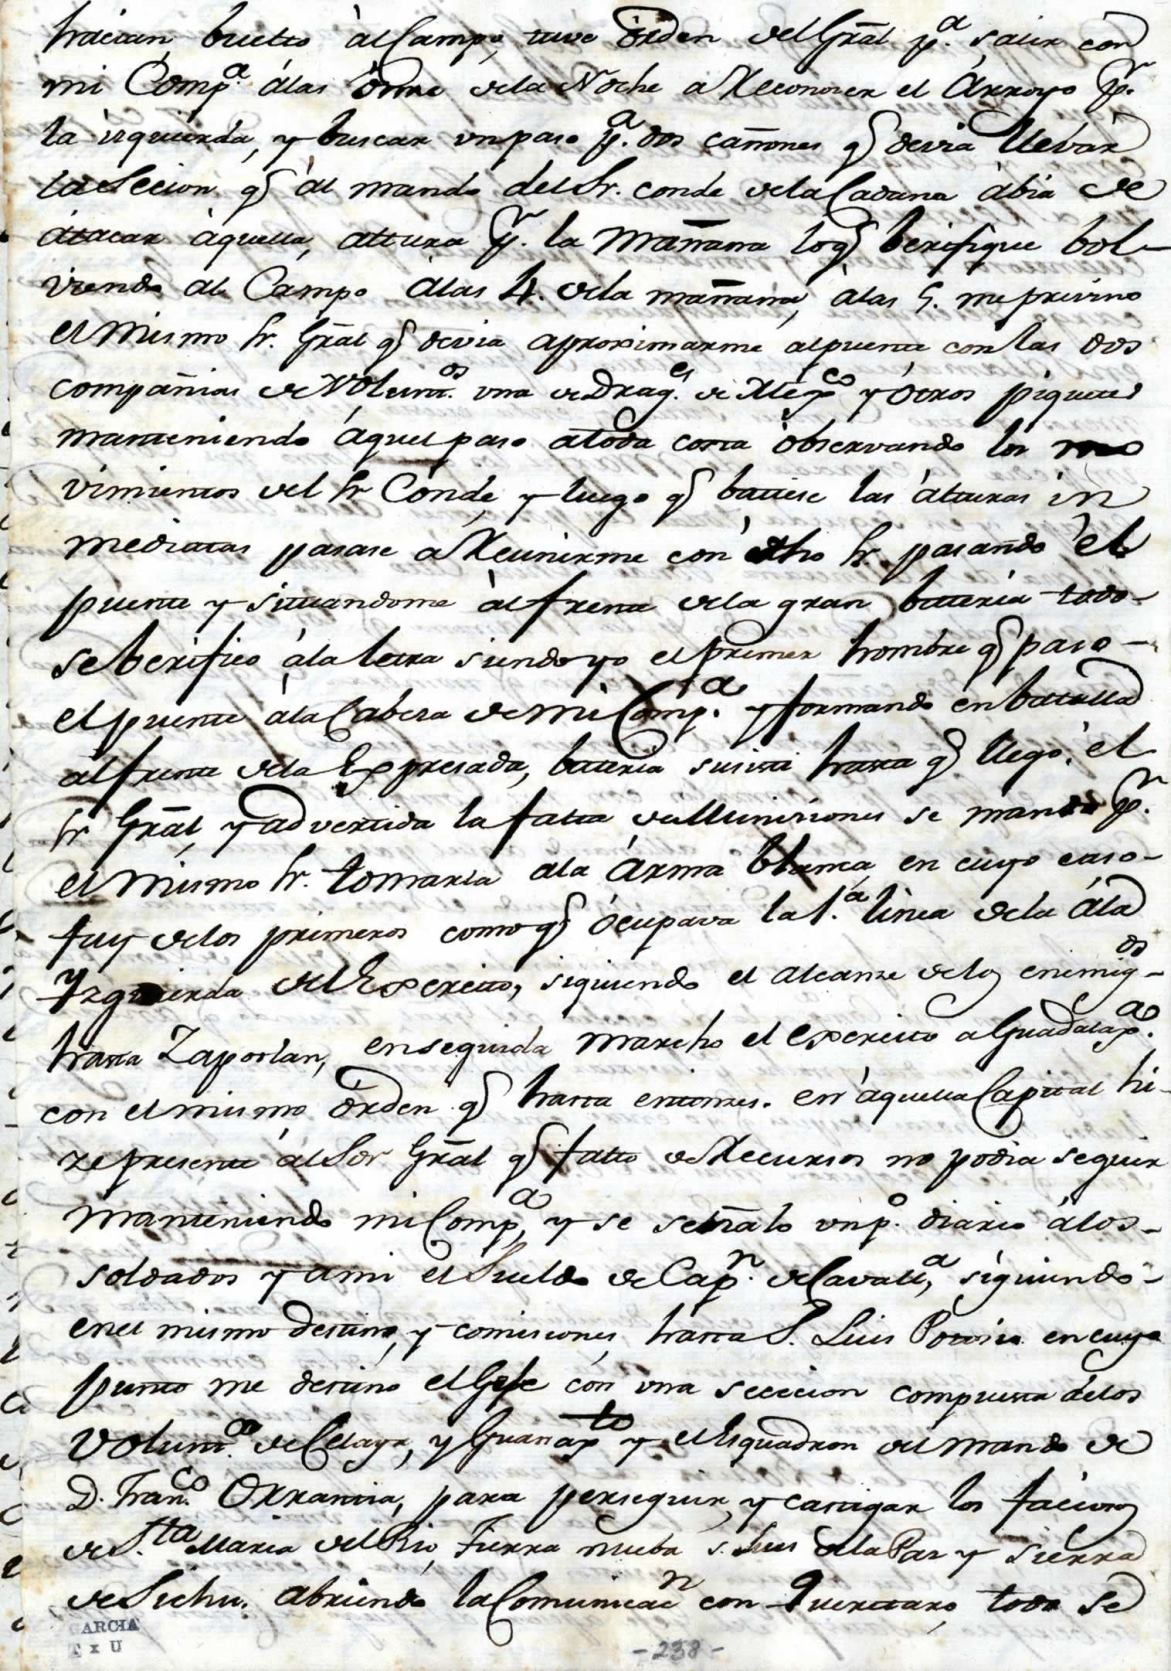 hacian buelto àl Campo, tuve òrden del Grãl p.ª salir con
mi Comp.ª álas onse de la Noche a Reconoser el Arroyo p.r
la izquierda, y buscar un paso p.ª dos cañones q devia llebar
la Secion q àl mando del Sr. conde de la Cadana àbia de
átacar àquella, altura p.r la Mañana loq berifique bol-
viendo al Campo álas 4. de la mañana, alas 5. me previno
el Mismo Sr. Grãl q devia aproximarme al puente con las dos
compañias de Volunt.os una de Drag.es de Mex.co y òtros piquetes
manteniendo áquel paso a toda costa òbservando los mo
vimientos del Sr Conde, y luego q batiese las àlturas in
mediatas pasase a Reunirme con dho Sr. pasando èl
puente y situandome àl frente de la gran bateria todo-
se berifico àla letra siendo yo el primer hombre q paso-
el puente àla Cabesa de mi Comp.ª y formando en batalla
al frente de la Expresada, bateria susisti hasta q llegó el
Sr Grãl, y advertida la falta de Munisiones se mando p.r
el Mismo Sr. tomarla ala árma blanca, en cuyo caso-
fuy de los primeros como q òcupava la 1.ª linea de la Ála
Yzquierda del Exercito, siguiendo el alcanse de los enemig.os-
hasta Zapotlan, enseguida marcho el exercito a Guadalax.ª
con el mismo òrden q hasta entonses. en àquella Capital hi-
ze presente àl Sor Grãl q falto de Recursos no podia seguir
manteniendo mi Comp.ª, y se señalo un p.º diario àlos-
soldados y ami el Sueldo de Cap.n de Cavall.ª, siguiendo-
en el mismo destino, y comisiones, hasta S. Luis Potosi en cuyo
punto me destino el Gefe con una seccion compuesta delos
Volunt.os de Celaya, y Guanax.to y el Esquadron del mando de
D. Fran.co Orrantia, para perseguir, y castigar los faciosos
de S.ta Maria del Rio, Tierra nueba S. Luis de la Paz y sierra
de Sichu. abriendo la Comunicac.n con Queretaro, todo se
GARCIA
T x U
- 238 -